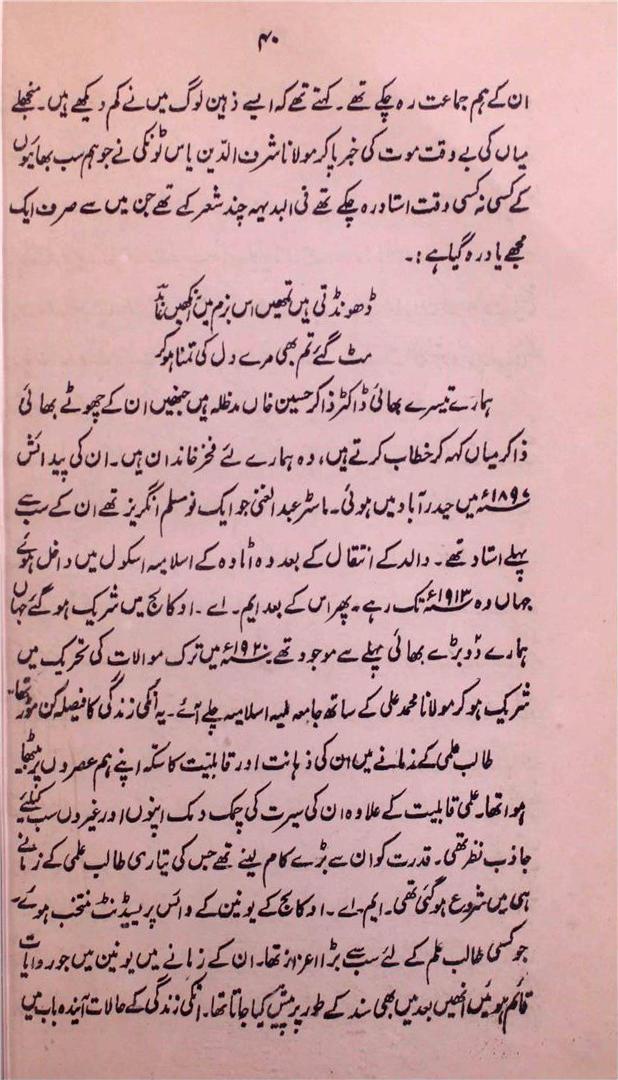 ۴۰
ان کے ہم جماعت رہ چکے تھے۔ کہتے تھے کہ ایسے ذہین لوگ میں نے کم دیکھے ہیں۔ منجھلے
میاں کی بے وقت موت کی خبر پا کر مولانا شرف الدین یاس ٹونکی نے جو ہم سب بھائیوں
کے کسی نہ کسی وقت استاد رہ چکے تھے فی البدیہہ چند شعر کہے تھے جن میں سے صرف ایک
مجھے یاد رہ گیا ہے :۔
ڈھونڈتی ہیں تمھیں اس بزم میں آنکھیں عابد
مٹ گئے تم بھی مرے دل کی تمنا ہو کر
ہمارے تیسرے بھائی ڈاکٹر ذاکر حسین خاں مدظلہ ہیں جنھیں ان کے چھوٹے بھائی
ذاکر میاں کہہ کر خطاب کرتے ہیں، وہ ہمارے لئے فخر خاندان ہیں۔ ان کی پیدائش
۱۸۹۷ء میں حیدرآباد میں ہوئی۔ ماسٹر عبدالغنی جو ایک نو مسلم انگریز تھے ان کے سب سے
پہلے استاد تھے۔ والد کے انتقال کے بعد وہ اٹاوہ کے اسلامیہ اسکول میں داخل ہوئے
جہاں وہ ۱۹۱۳ء تک رہے۔ پھر اس کے بعد ایم۔ اے۔ او کالج میں شریک ہو گئے جہاں
ہمارے دو بڑے بھائی پہلے سے موجود تھے۔ ۱۹۲۰ء میں ترک موالات کی تحریک میں
شریک ہو کر مولانا محمد علی کے ساتھ جامعہ ملیہ اسلامیہ چلے آئے۔ یہ انکی زندگی کا فیصلہ کن موڑ تھا۔
طالب علمی کے زمانے میں ان کی ذہانت اور قابلیت کا سکہ اپنے ہم عصروں پر بیٹھا
ہوا تھا۔ علمی قابلیت کے علاوہ ان کی سیرت کی چمک دمک اپنوں اور غیروں سب کیلئے
جاذب نظر تھی۔ قدرت کو ان سے بڑے کام لینے تھے جس کی تیاری طالب علمی کے زمانے
ہی میں شروع ہو گئی تھی۔ ایم۔ اے۔ او کالج کے یونین کے وائس پریسیڈنٹ منتخب ہوئے۔
جو کسی طالب علم کے لئے سب سے بڑا اعزاز تھا۔ ان کے زمانے میں یونین میں جو روایات
قائم ہوئیں انھیں بعد میں بھی سند کے طور پر پیش کیا جاتا تھا۔ انکی زندگی کے حالات آیندہ باب میں